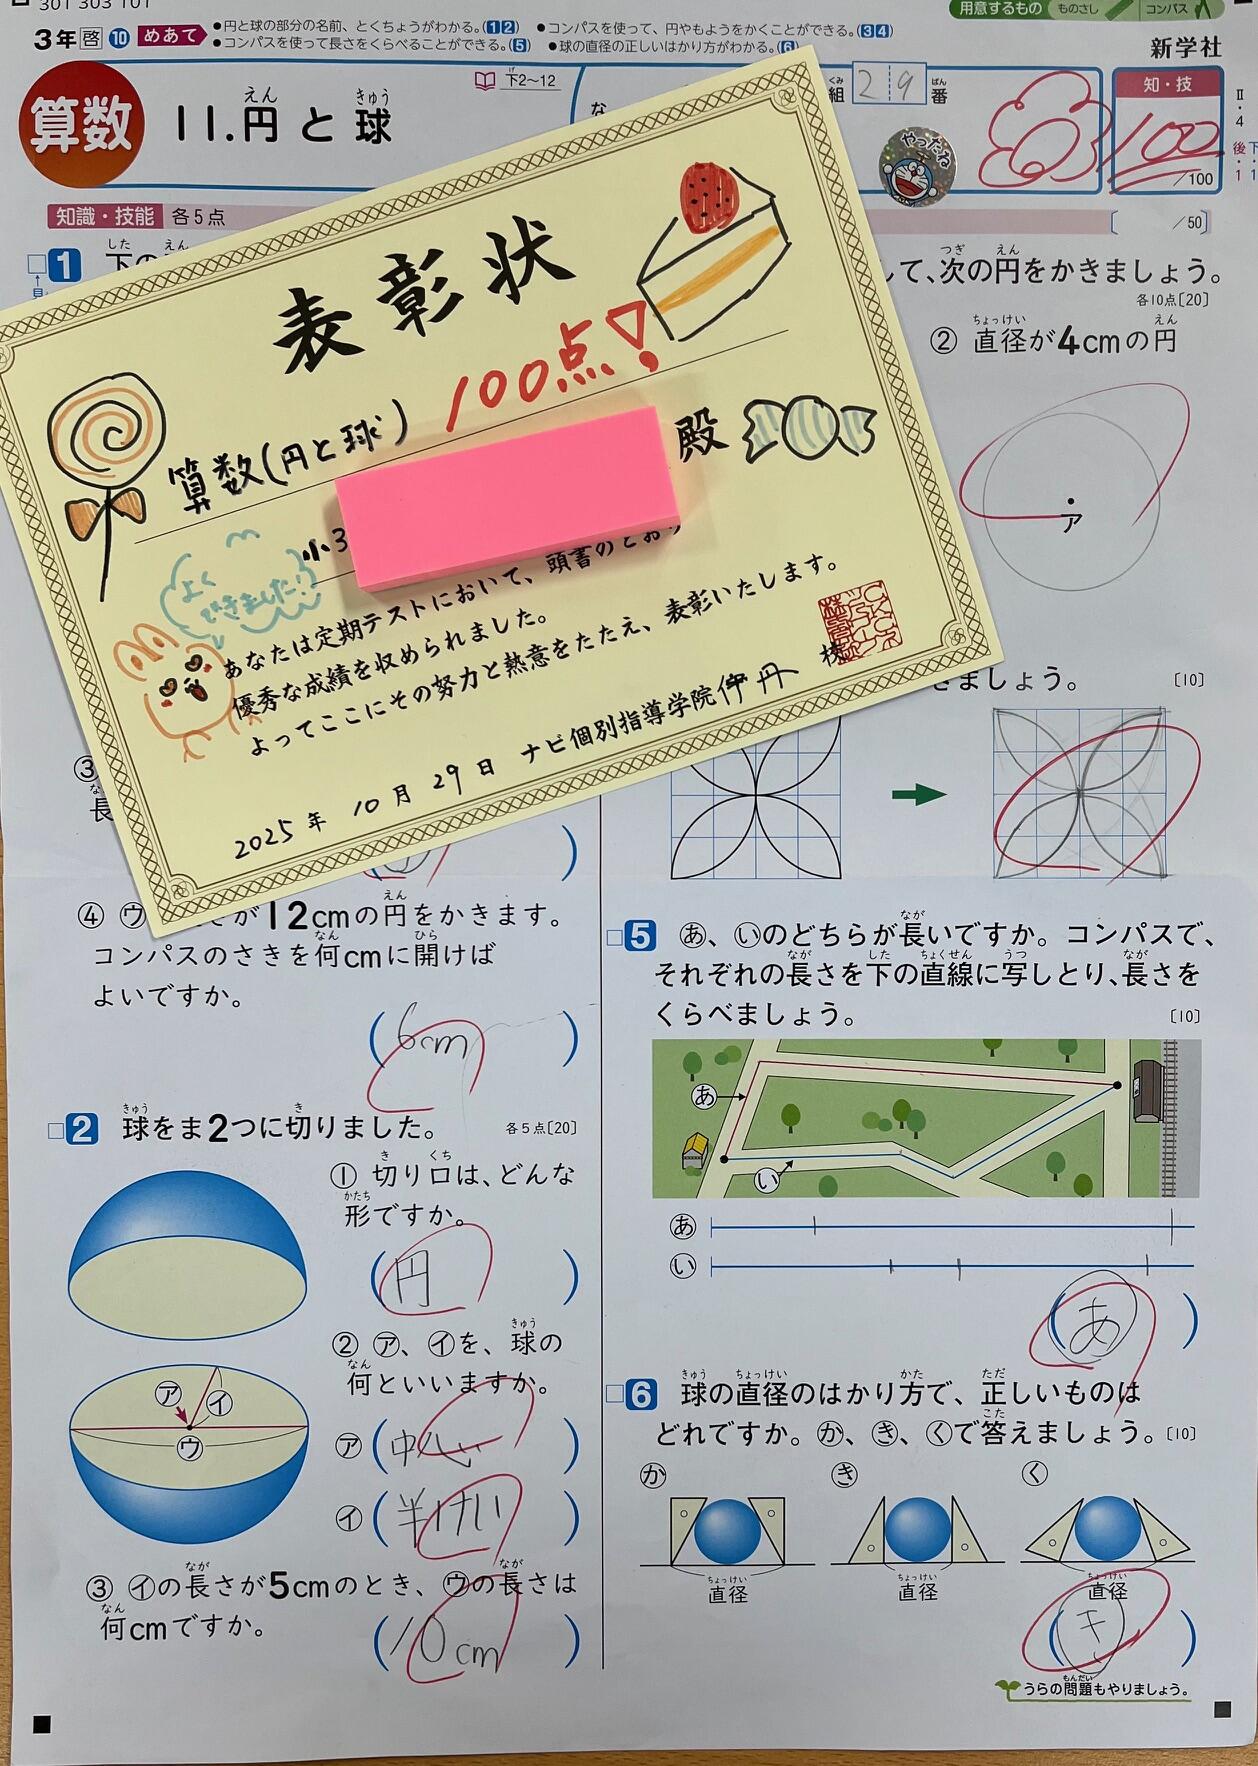 301 303 101
3年 啓 10 めあて
●円と球の部分の名前、とくちょうがわかる。(1 2) ●コンパスを使って、円やもようをかくことができる。(3 4)
●コンパスを使って長さをくらべることができる。(5) ●球の直径の正しいはかり方がわかる。(6)
用意するもの ものさし コンパス
新学社
算数 11.円と球
下2〜12
な
組 29 番
やったね
知・技
100
/100
II・4 後・1 下・1
知識・技能 各5点
/50
1 下の
表彰状
100点!
算数(円と球)
小3 殿
よくできました!
あなたは定期テストにおいて、頭書のとおり
優秀な成績を収められました。
よってここにその努力と熱意をたたえ、表彰いたします。
2025年 10月 29日 ナビ個別指導学院 伊丹 校
③
長
④ ウ さが12cmの円をかきます。
コンパスのさきを何cmに開けば
よいですか。
(6cm)
2 球をま2つに切りました。 各5点[20]
① 切り口は、どんな
形ですか。
(円)
② ア、イを、球の
何といいますか。
ア (中心)
イ (半けい)
ア イ ウ
③ イの長さが5cmのとき、ウの長さは
何cmですか。
(10cm)
して、次の円をかきましょう。
各10点[20]
② 直径が4cmの円
ア
きましょう。 [10]
5 あ、いのどちらが長いですか。コンパスで、
それぞれの長さを下の直線に写しとり、長さを
くらべましょう。 [10]
あ
い
あ
い
(あ)
6 球の直径のはかり方で、正しいものは
どれですか。か、き、くで答えましょう。[10]
か き く
直径 直径 直径
(き)
うらの問題もやりましょう。